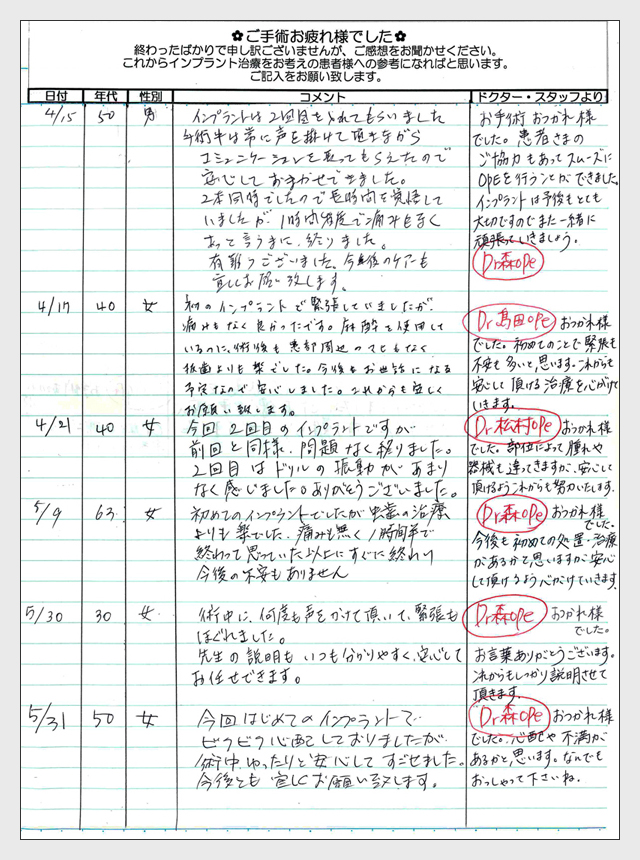 ✿ご手術お疲れ様でした✿
終わったばかりで申し訳ございませんが、ご感想をお聞かせください。
これからインプラント治療をお考えの患者様への参考になればと思います。
ご記入をお願い致します。
日付 年代 性別 コメント ドクター・スタッフより
4/15 50 男
インプラントは2回目を入れてもらいました
手術中は常に声を掛けて頂きながら
コミュニケーションを取ってもらえたので
安心しておまかせできました。
2本同時でしたので長時間を覚悟して
いましたが、1時間程度で痛みもなく
あっと言うまに終りました。
有難うございました。今後のケアーも
宜しくお願い致します。
お手術おつかれ様
でした。患者さまの
ご協力もあってスムーズに
OPEを行うことができました。
インプラントは予後もとても
大切ですのでまた一緒に
頑張っていきましょう。
Dr森ope
4/17 40 女
初のインプラントで緊張していましたが、
痛みもなく良かったです。麻酔を使用して
いるのに、術後も患部周辺の
抜歯よりも楽でした。今後もお世話になる
予定なので安心しました。これからも宜しく
お願い致します。
Dr島田ope おつかれ様
でした。初めてのことで緊張も
不安も多いと思います。これからも
安心して頂ける治療を心がけて
いきます。
4/21 40 女
今回2回目のインプラントですが
前回と同様、問題なく終りました。
2回目はドリルの振動があまり
なく感じました。ありがとうございました。
Dr松村ope おつかれ様
でした。部位によって腫れや
器械も違ってきますが、安心して
頂けるようこれからも努力いたします。
5/9 63 女
初めてのインプラントでしたが虫歯の治療
よりも楽でした。痛みも無く1時間半で
終わって思っていた以上にすぐに終わり
今後の不安もありません
Dr森ope おつかれ様
でした。
今後も初めての処置・治療
があるかと思いますが安心
して頂けるよう心がけていきます。
5/30 30 女
術中に、何度も声をかけて頂いて、緊張も
ほぐれました。
先生の説明も いつも分かりやすく、安心して
お任せできます。
Dr森ope おつかれ様
でした。
お言葉ありがとうございます。
これからもしっかり説明させて
頂きます。
5/31 50 女
今回はじめてのインプラントで
ビクビク心配しておりましたが
術中ゆったりと安心してすごせました。
今後とも宜しくお願い致します。
Dr森ope おつかれ様
でした。心配や不満が
あるかと思います。なんでも
おっしゃって下さいね。